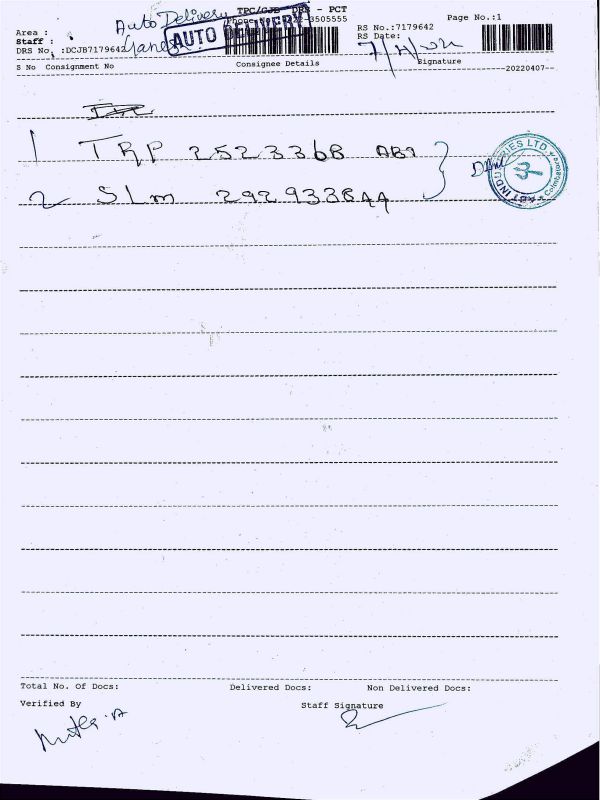 Auto Delivery
TPC/CJB DRS - PCT
Page No.:1
Area :
AUTO DELIVERY
RS No.:7179642
Staff :
RS Date:
DRS No. :DCJB7179642
7/4/22
S No Consignment No Consignee Details Signature
20220407
1 TRP 2523368 AB1
2 SLM 2929338 AA
ABT INDUSTRIES LTD
Coimbatore
Total No. Of Docs: Delivered Docs: Non Delivered Docs:
Verified By Staff Signature